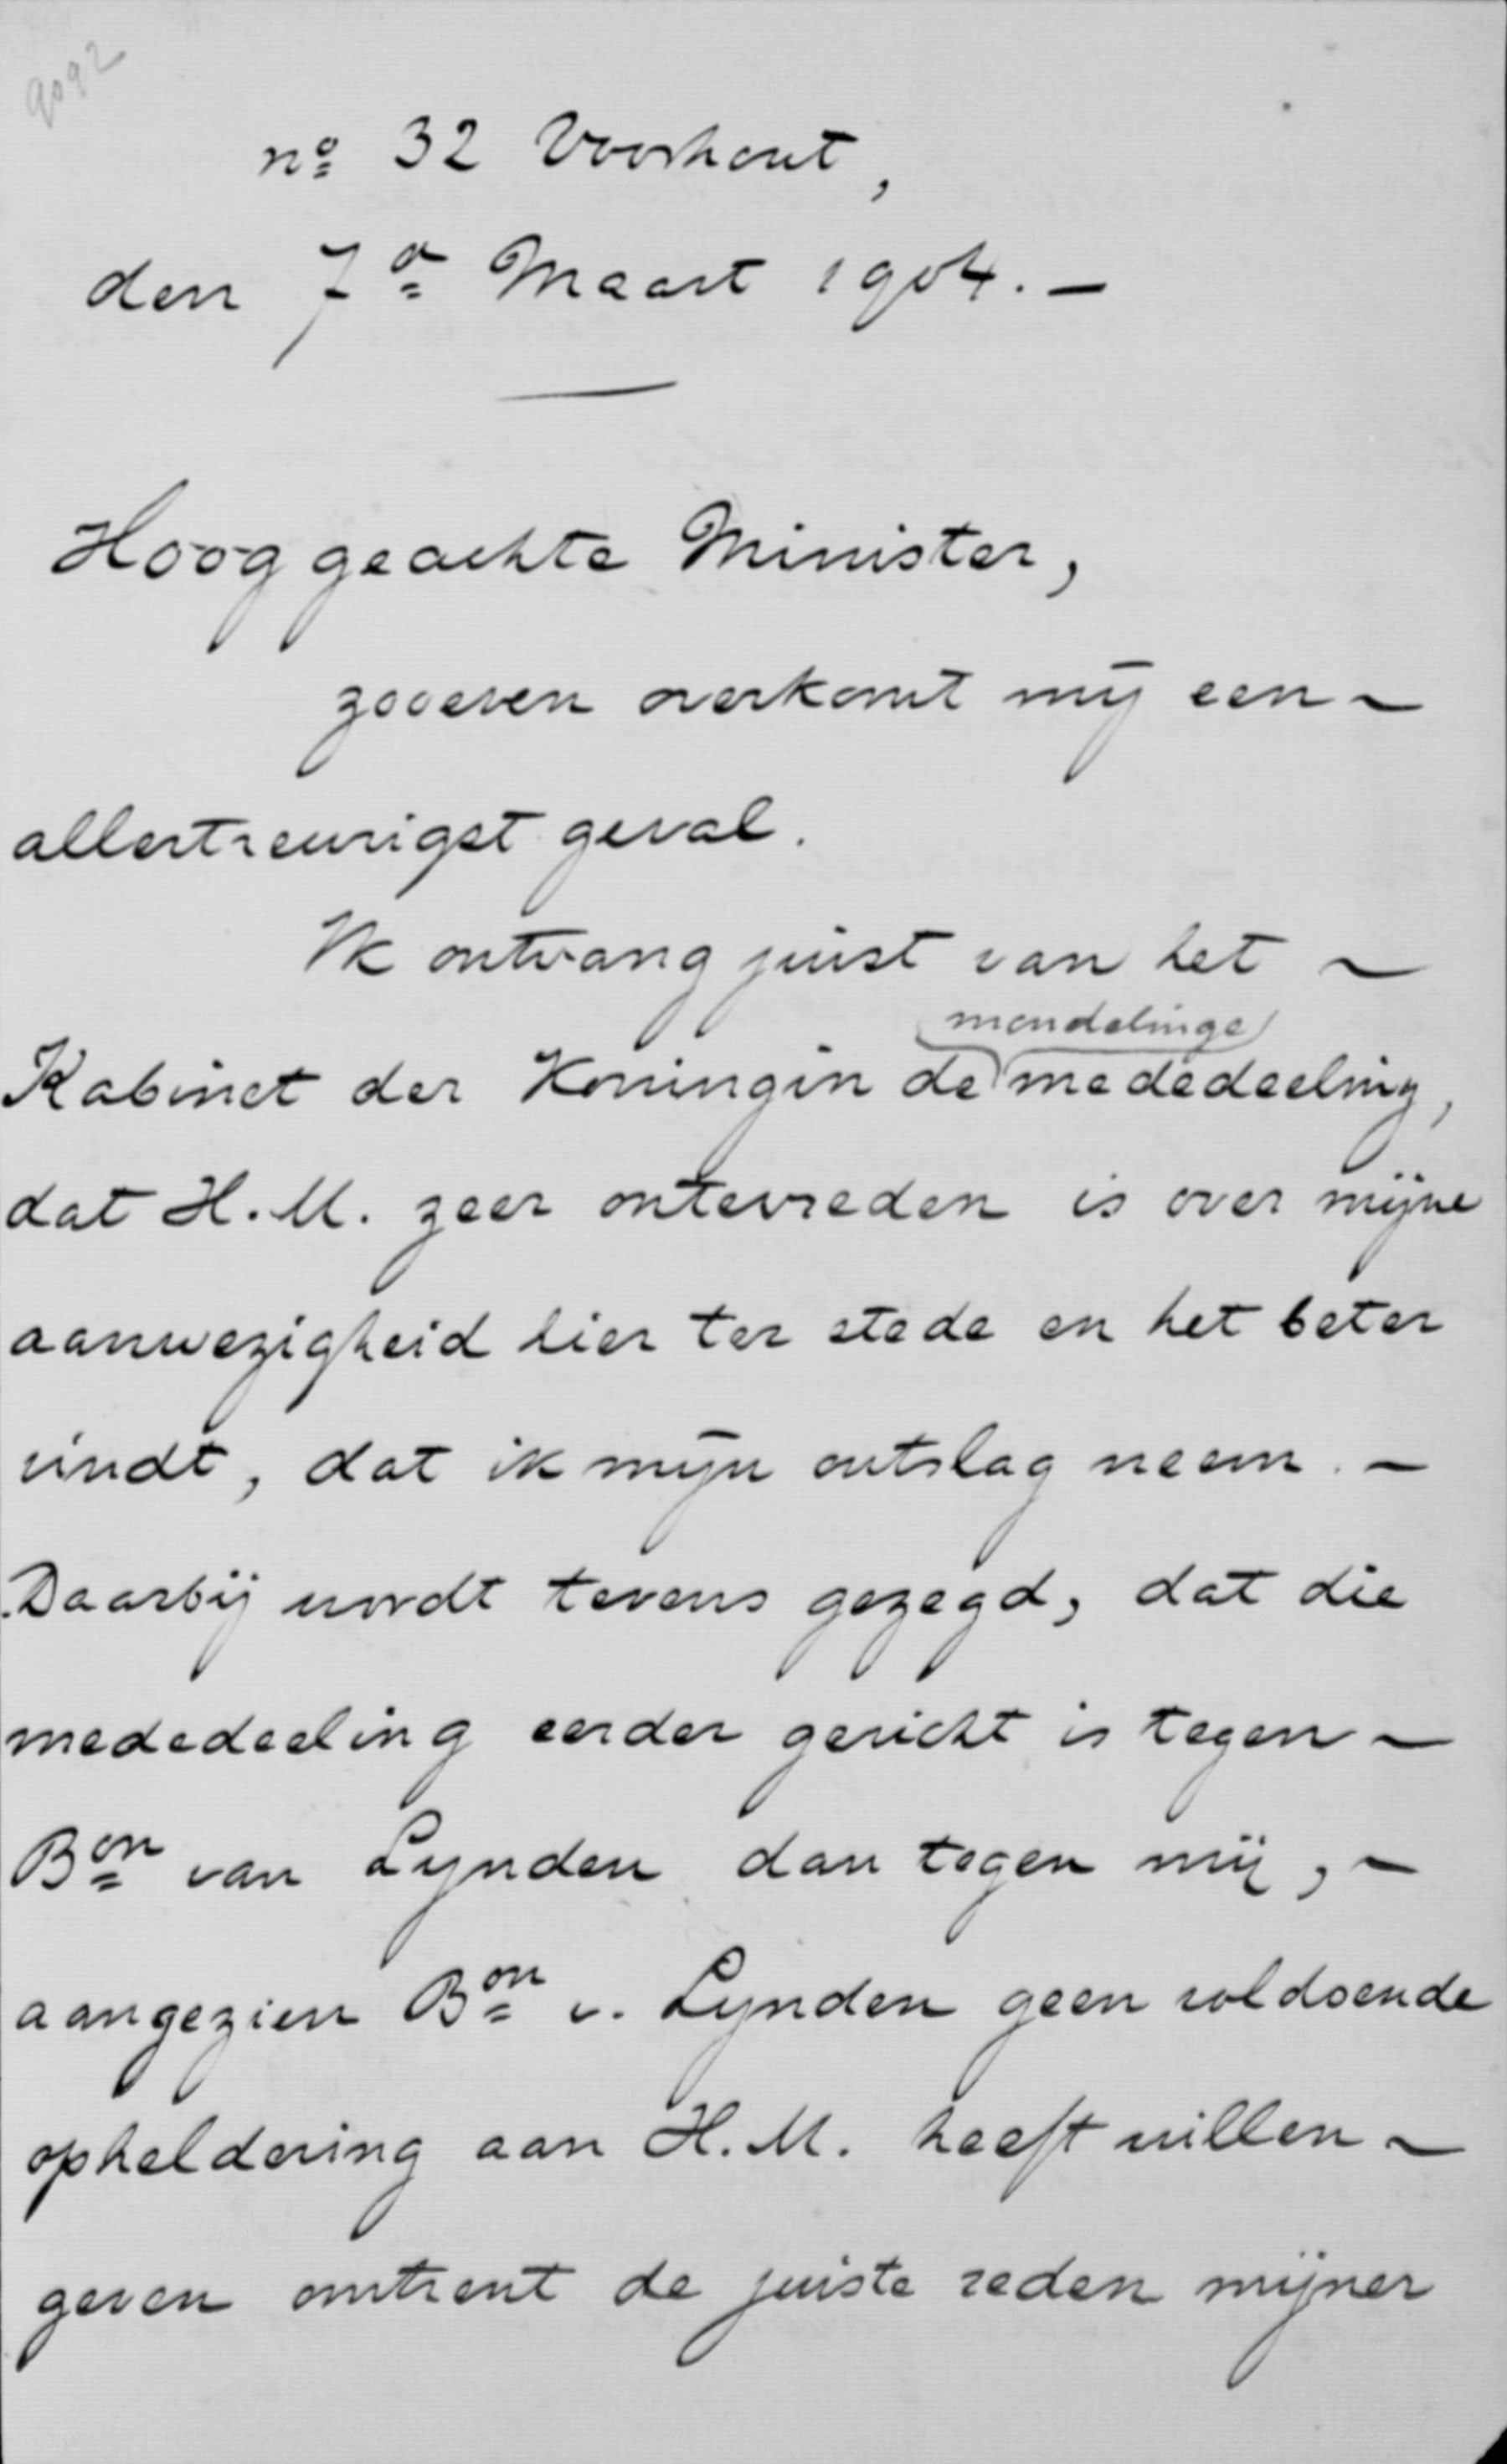 9092
nº 32 Voorhout,
den 7ª Maart 1904. —
Hooggeachte Minister,
zooeven overkomt mij een ~
allertreurigst geval.
Ik ontvang juist van het ~
mondelinge
Kabinet der Koningin de mededeeling,
dat H.M. zeer ontevreden is over mijne
aanwezigheid hier ter stede en het beter
vindt, dat ik mijn ontslag neem. —
Daarbij wordt tevens gezegd, dat die
mededeeling eerder gericht is tegen ~
Bon van Lynden dan tegen mij, ~
aangezien Bon v. Lynden geen voldoende
opheldering aan H.M. heeft willen ~
geven omtrent de juiste reden mijner